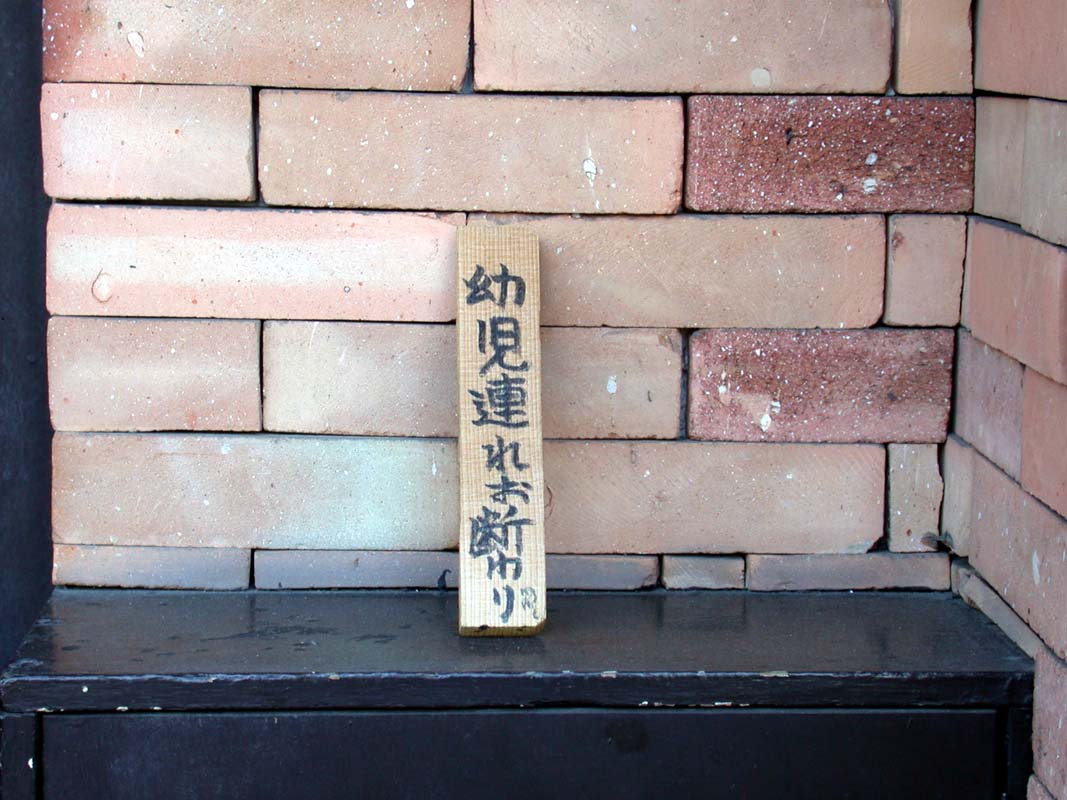 幼児連れお断わり